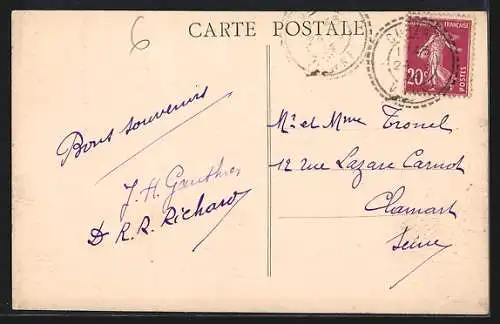 6
CARTE POSTALE
FRANÇAISE
20
POSTES
Bons souvenirs
J. H. Gauthier
Dr R. R. Richard
Mr et Mme Tronel
12 rue Lazare Carnot
Clamart
Seine